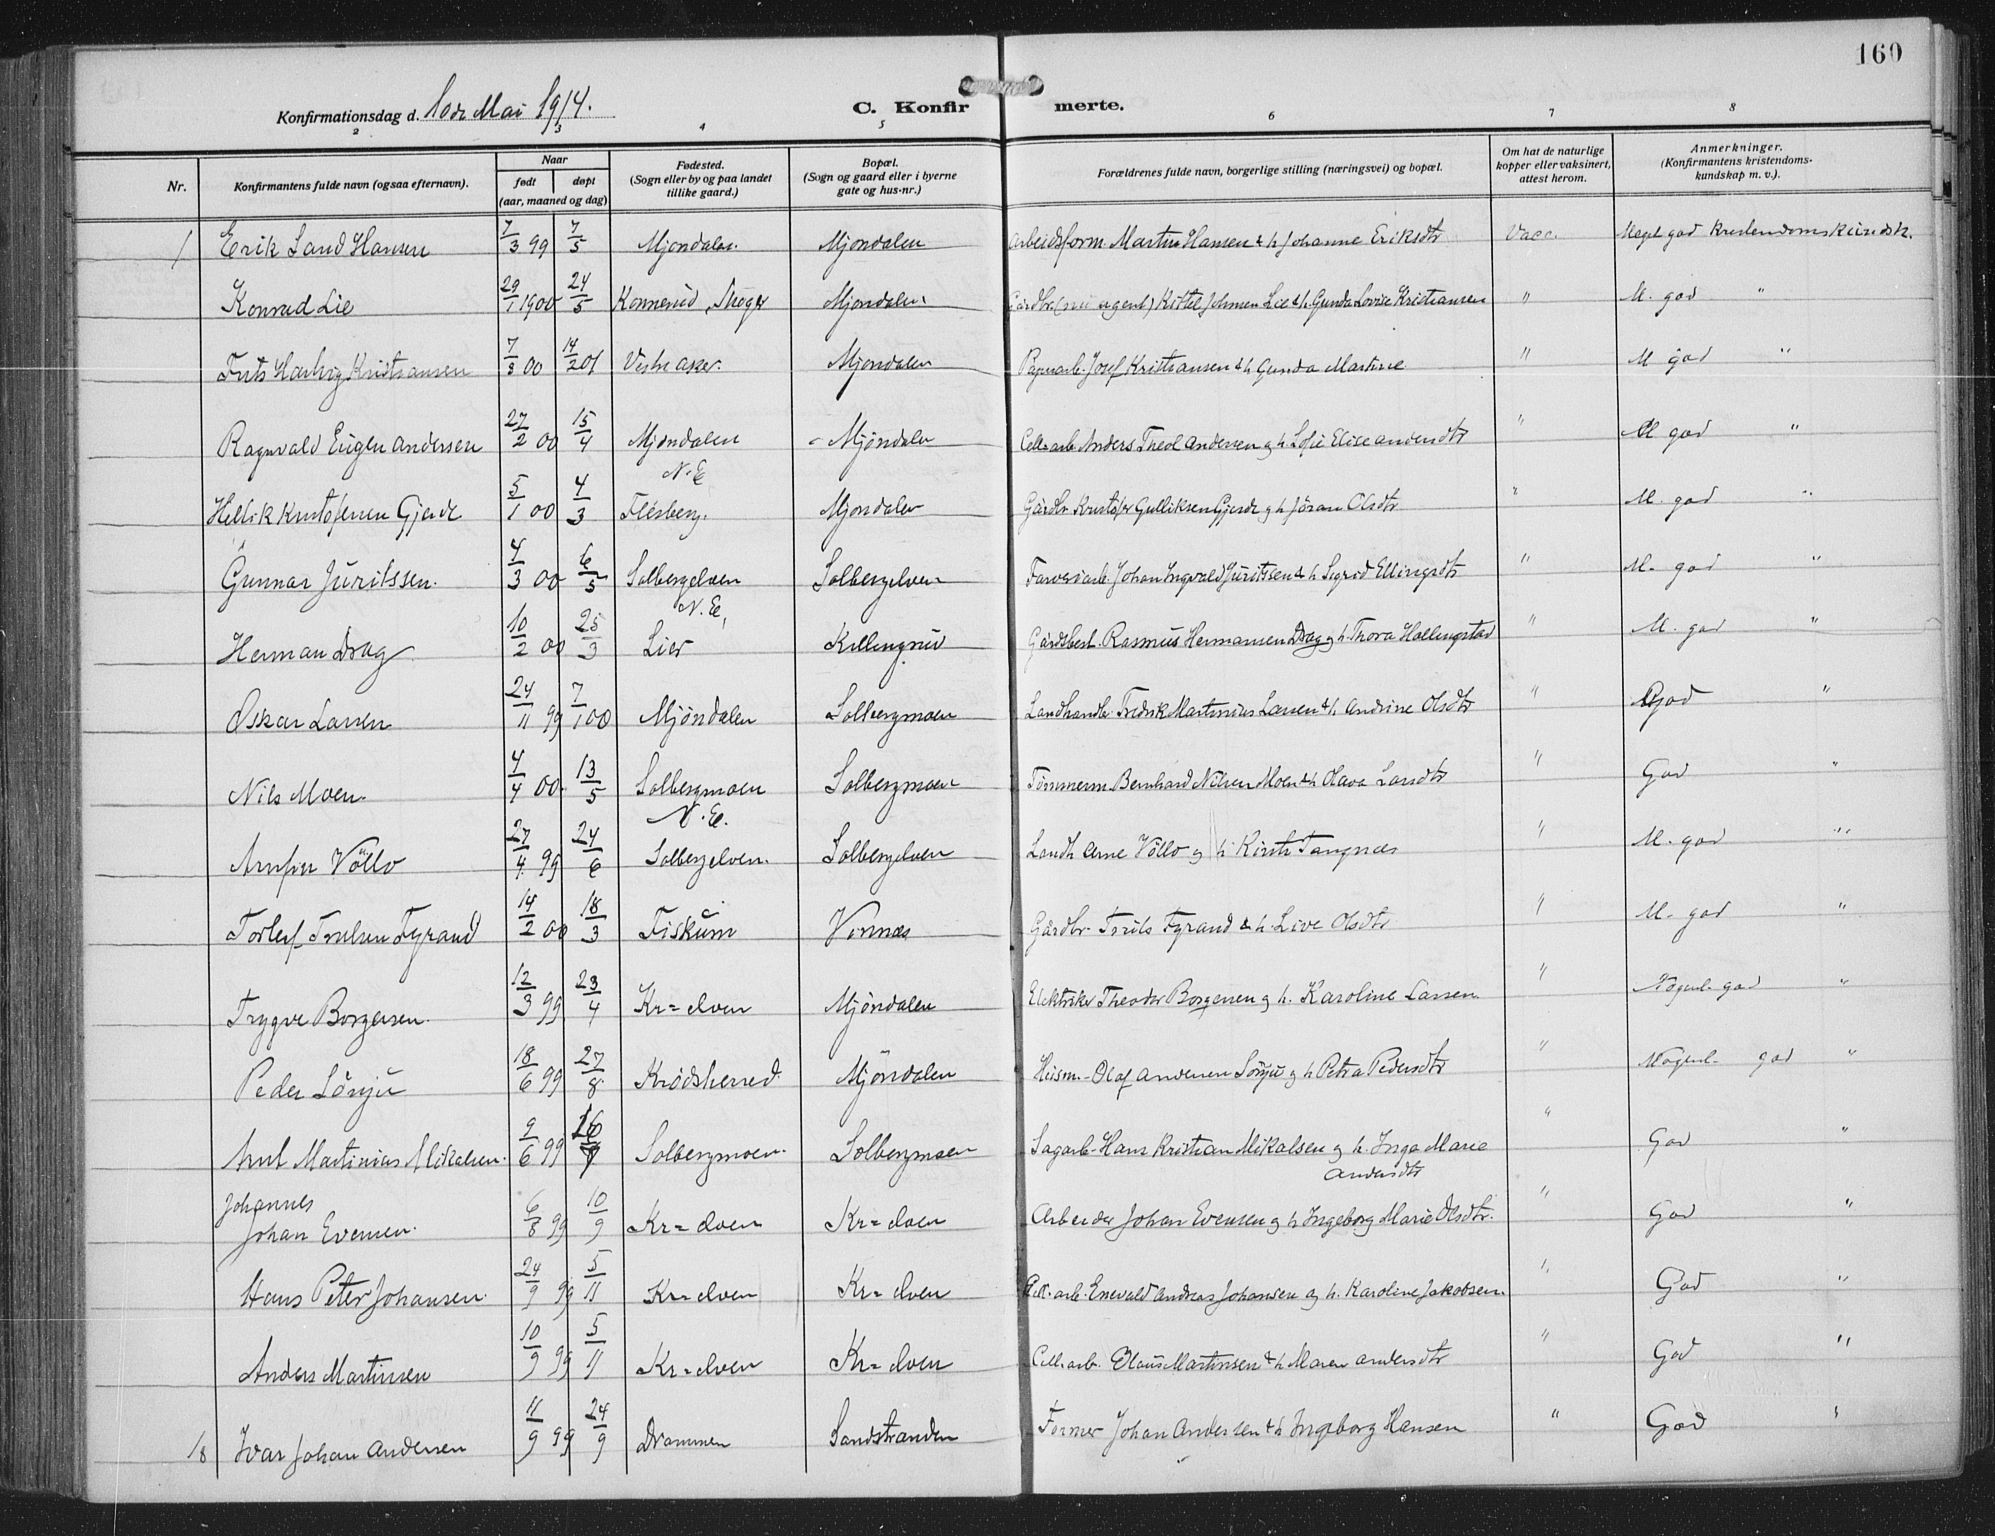 160
Konfirmationsdag d. 10de Mai 1914.
C. Konfirmerte.
2 3 4 5 6 7 8
Nr. Konfirmantens fulde navn (ogsaa efternavn). Naar født døpt (aar, maaned og dag) Fødested. (Sogn eller by og paa landet tillike gaard.) Bopæl. (Sogn og gaard eller i byerne gate og hus-nr.) Forældrenes fulde navn, borgerlige stilling (næringsvei) og bopæl. Om hat de naturlige kopper eller vaksinert, attest herom. Anmerkninger. (Konfirmantens kristendomskundskap m. v.).
1 Erik Sand Hansen 7/3 99 7/5 Mjøndalen. Mjøndalen Arbeidsform. Martin Hansen & h. Johanne Eriksdtr Vacc. Meget god kristendomskundsk.
Konrad Lie 29/1 1900 24/5 Konnerud, Skoger Mjøndalen Gårdbr. (nu agent) Kittel Johnsen Lie & h. Gunda Lovise Kristiansen " M. god "
Frits Harhvig Kristiansen 7/8 00 14/2 01 Vestre Aker. Mjøndalen Papirarb. Josef Kristiansen & h Gunda Martine " M god "
Ragnvald Eugen Andersen 27/2 00 15/4 Mjøndalen N.E Mjøndalen Cell.arb Anders Theol Andersen og h Sofie Elise Andersdtr " M god "
Hellik Kristofersen Gjerde 5/1 00 4/3 Flesberg. Mjøndalen Gårdbr Kristofer Gulliksen Gjerde og h Jöran Olsdtr " M. god "
Gunnar Juritssen. 4/3 00 6/5 Solbergelven N.E, Solbergelven Farveriarb. Johan Ingvald Juritssen & h Sigrid Ellingsdtr " M. god "
Herman Drag 10/2 00 25/3 Lier Killingrud Gårdsbest. Rasmus Hermansen Drag og h. Thora Hallingstad " M. god "
Oskar Larsen 24/11 99 7/1 00 Mjöndalen Solbergmoen Landhandl. Fredrik Martinius Larsen & h. Andrine Olsdtr " God "
Nils Moen. 4/4 00. 13/5 Solbergmoen N.E. Solbergmoen Tömmerm. Bernhard Nilsen Moen & h Olava Larsdtr " God "
Arnfin Völlo 27/4 99 24/6 Solbergelven. Solbergelven Landh. Arne Völlo og h. Kirsti Tangnæs " M. god "
Torleif Trulsen Fyrand 14/2 00 18/3 Fiskum Vinnæs Gårdbr. Truls Fyrand & h. Live Olsdtr " M. god "
Trygve Borgersen. 12/3 99 23/4 Kr=elven Mjöndalen Elektriker Theodor Borgersen og h. Karoline Larsen " Nogenl. god "
Peder Sönju 18/6 99 27/8 Krødsherred. Mjöndalen Husm. Olaf Andersen Sönju og h Petra Pedersdtr " Nogenl. god "
Arnt Martinius Mikalsen. 9/6 99 16/7 Solbergmoen. Solbergmoen Sagarb. Hans Kristian Mikalsen og h. Inga Marie Andersdtr " God "
Johannes
Johan Evensen. 6/8 99 10/9 Kr=elven Kr=elven Arbeider Johan Evensen og h Ingeborg Marie Olsdtr. " God "
Hans Peter Johansen. 24/9 99 5/11 Kr=elven Kr=elven Cell.arb. Enevald Andreas Johansen og h. Karoline Jakobsen. " God "
Anders Martinsen 10/9 99 5/11 Kr=elven Kr=elven Cell.arb. Olaus Martinsen & h Maren Andersdtr " God "
18 Ivar Johan Andersen 11/9 99 24/9 Drammen Sandstranden Former Johan Andersen & h Ingeborg Hansen " God "